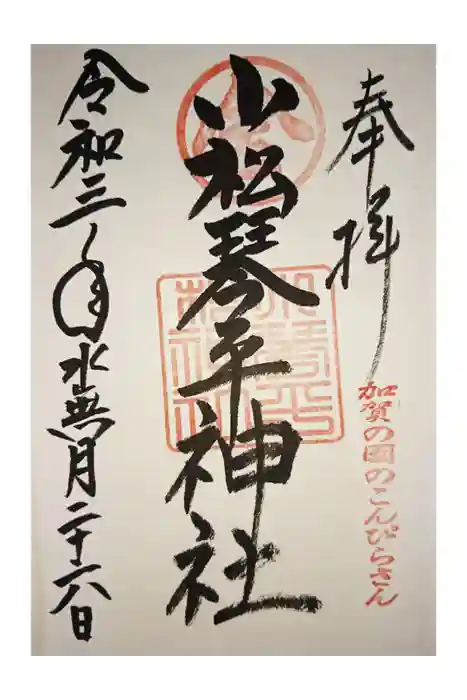 奉拝
加賀の国のこんぴらさん
小松琴平神社
令和三年水無月二十六日